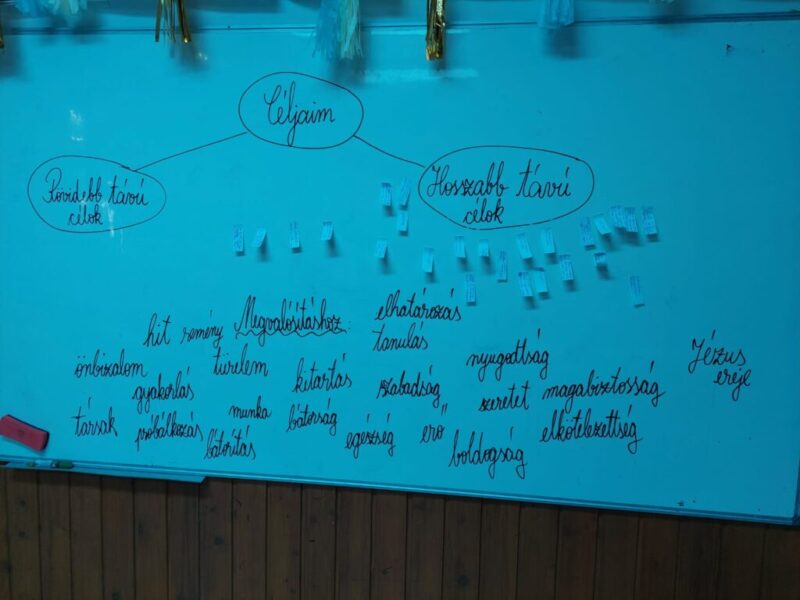 Céljaim
Rövidebb távú
célok
Hosszabb távú
célok
Megvalósításhoz:
hit remény
elhatározás
tanulás
önbizalom
türelem
nyugodtság
Jézus
ereje
gyakorlás
kitartás
szabadság
szeretet
magabiztosság
társak
próbálkozás
munka
bátorság
erő
elkötelezettség
bátorítás
egészség
boldogság